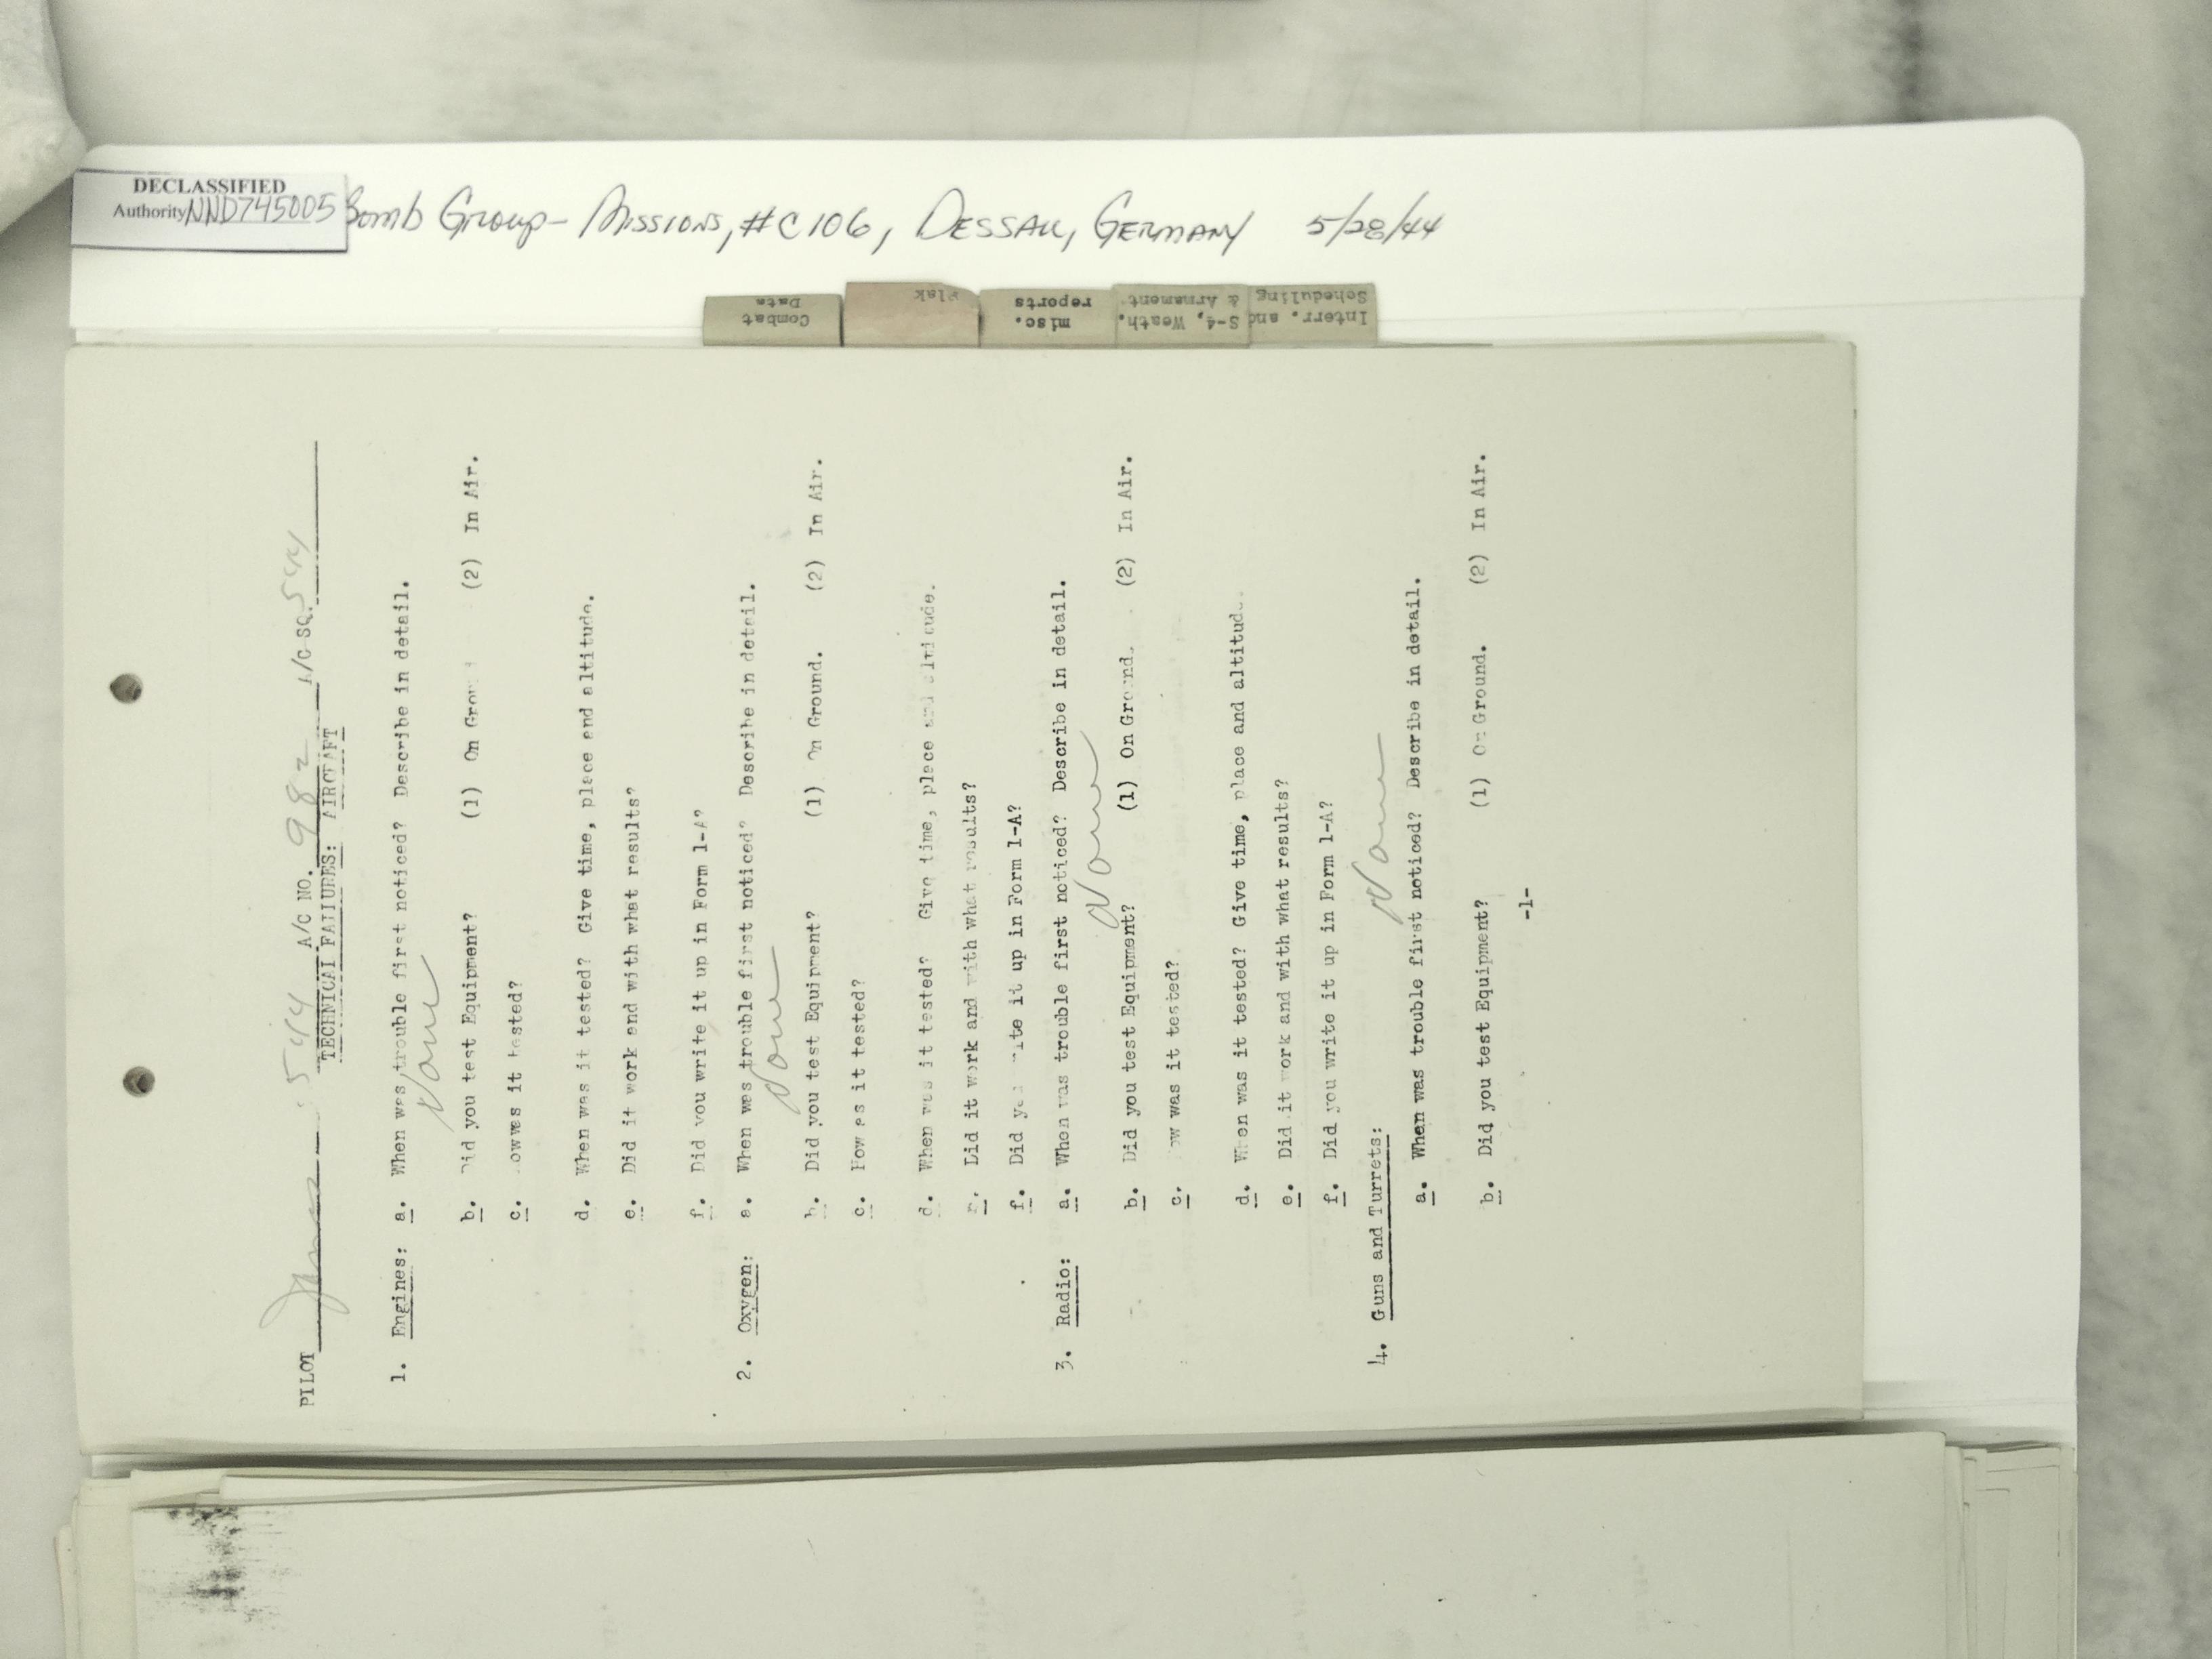 DECLASSIFIED
Authority NND745005
Bomb Group - Missions, #C106, Dessau, Germany 5/28/44
Combat Data
Flak
misc. reports
S-4, Weath. & Armament
Interr. and Scheduling
PILOT 544 A/C NO. 982 A/C SQ. 544
TECHNICAL FAILURES: AIRCRAFT
1. Engines: a. When was trouble first noticed? Describe in detail.
None
b. Did you test Equipment? (1) On Ground (2) In Air.
c. How was it tested?
d. When was it tested? Give time, place and altitude.
e. Did it work and with what results?
f. Did you write it up in Form 1-A?
2. Oxygen: a. When was trouble first noticed? Describe in detail.
None
b. Did you test Equipment? (1) On Ground. (2) In Air.
c. How as it tested?
d. When was it tested? Give time, place and altitude.
e. Did it work and with what results?
f. Did you write it up in Form 1-A?
3. Radio: a. When was trouble first noticed? Describe in detail.
None
b. Did you test Equipment? (1) On Ground. (2) In Air.
c. How was it tested?
d. When was it tested? Give time, place and altitude.
e. Did it work and with what results?
f. Did you write it up in Form 1-A?
4. Guns and Turrets:
None
a. When was trouble first noticed? Describe in detail.
b. Did you test Equipment? (1) On Ground. (2) In Air.
-1-